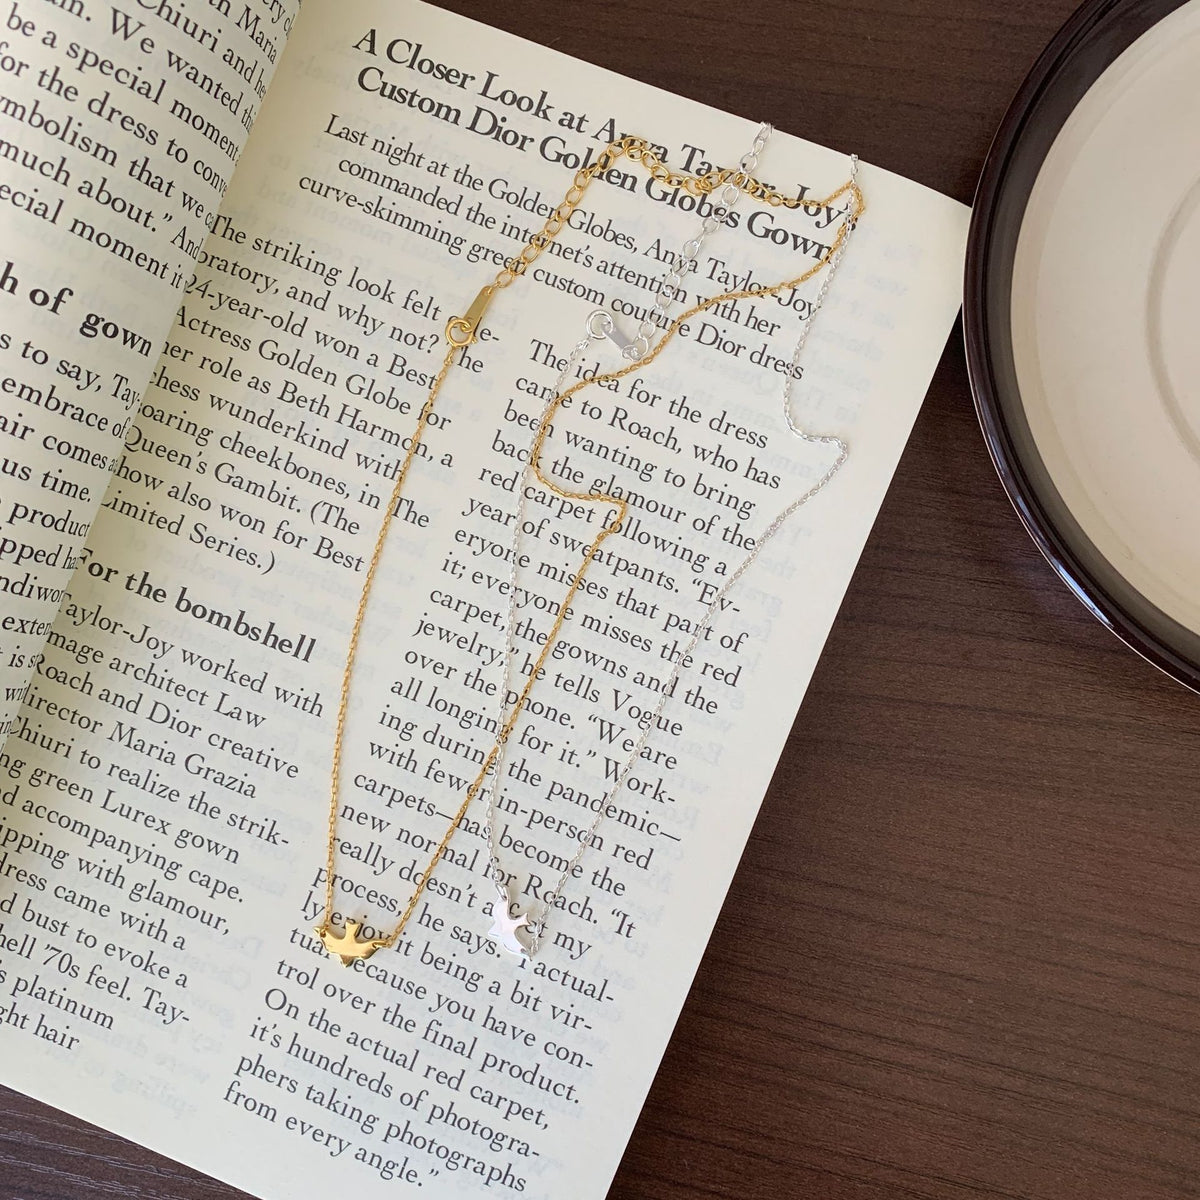 Chiuri and he
am. We wanted th
be a special moment
for the dress to conve
mbolism that we c
much about.” And
ecial moment it
h of gown
s to say, Tay-
embrace of
air comes
us time.
product
A Closer Look at Anya Taylor-Joy's
Custom Dior Golden Globes Gown
Last night at the Golden Globes, Anya Taylor-Joy
commanded the internet's attention with her
curve-skimming green custom couture Dior dress
The striking look felt
oratory, and why not? The
24-year-old won a Best
Actress Golden Globe for
her role as Beth Harmon, a
chess wunderkind with
soaring cheekbones, in The
Queen's Gambit. (The
show also won for Best
Limited Series.)
For the bombshell
Taylor-Joy worked with
image architect Law
Roach and Dior creative
director Maria Grazia
Chiuri to realize the strik-
ing green Lurex gown
nd accompanying cape.
ipping with glamour,
dress came with a
d bust to evoke a
hell '70s feel. Tay-
s platinum
ght hair
The idea for the dress
came to Roach, who has
been wanting to bring
back the glamour of the
red carpet following a
year of sweatpants. “Ev-
eryone misses that part of
it; everyone misses the red
carpet, the gowns and the
jewelry,” he tells Vogue
over the phone. “We are
all longing for it.” Work-
ing during the pandemic—
with fewer in-person red
carpets—has become the
new normal for Roach. “It
really doesn't affect my
process,” he says. “I actual-
ly enjoy it being a bit vir-
tual because you have con-
trol over the final product.
On the actual red carpet,
it's hundreds of photogra-
phers taking photographs
from every angle.”